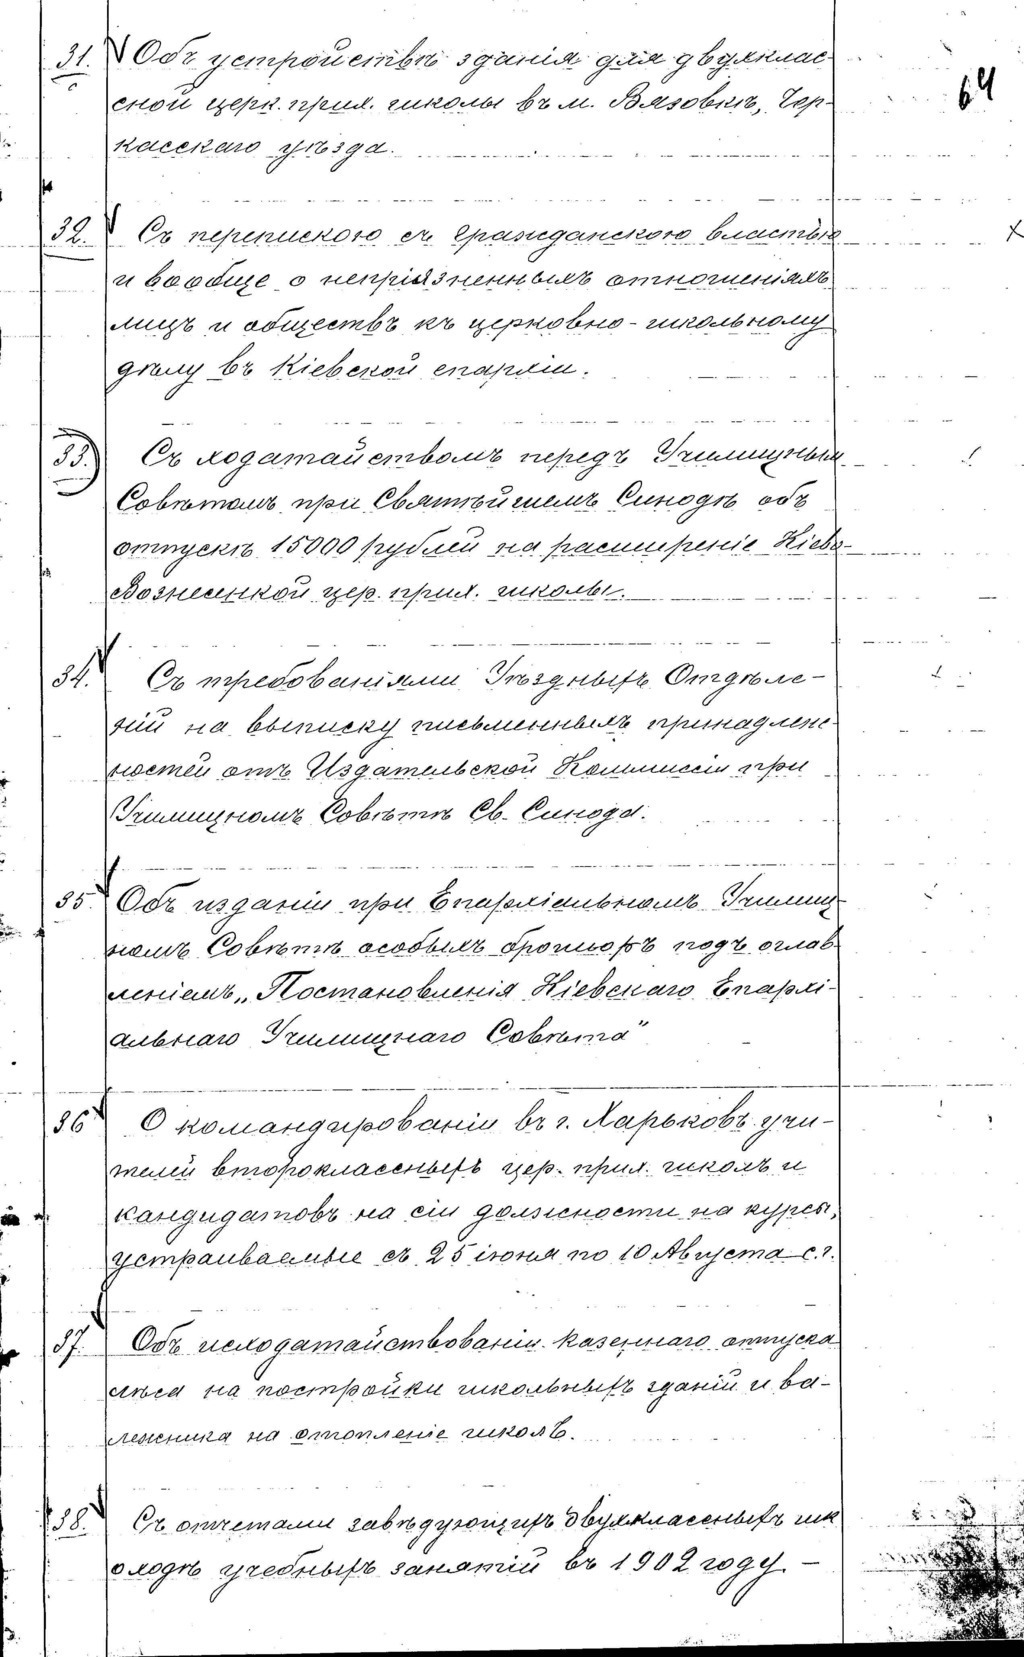 64
31. Объ устройствѣ зданія для двухклас-
сной церк. прих. школы въ м. Вязовкѣ, Чер-
касскаго уѣзда.
32. Съ перепискою съ гражданскою властью
и вообще о непріязненныхъ отношеніяхъ
лицъ и обществъ къ церковно-школьному
дѣлу въ Кіевской епархіи.
33. Съ ходатайствомъ передъ Училищным
Совѣтомъ при Святѣйшемъ Синодѣ объ
отпускѣ 15000 рублей на расширеніе Кіево-
Вознесенкой цер. прих. школы.
34. Съ требованіями Уѣздныхъ Отдѣле-
ній на выписку письменныхъ принадлеж-
ностей отъ Издательской Коммиссіи при
Училищномъ Совѣтѣ Св. Синода.
35. Объ изданіи при Епархіальномъ Училищ-
номъ Совѣтѣ особыхъ брошюръ подъ оглав
леніемъ „Постановленія Кіевскаго Епархі-
альнаго Училищнаго Совѣта"
36 О командированіи въ г. Харьковъ учи-
телей второклассныхъ цер. прих. школъ и
кандидатовъ на сіи должности на курсы,
устраиваемые съ 25 іюня по 10 Августа с.г.
37. Объ исходатайствованіи казеннаго отпуска
лѣса на постройки школьныхъ зданій и ва-
лежника на отопленіе школъ.
38. Съ отчетами завѣдующихъ двухклассныхъ шк
о ходѣ учебныхъ занятій въ 1902 году. –